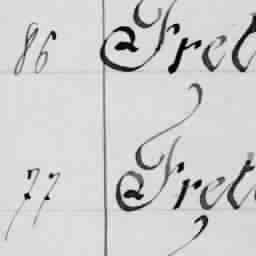 86 Fret
77 Fret